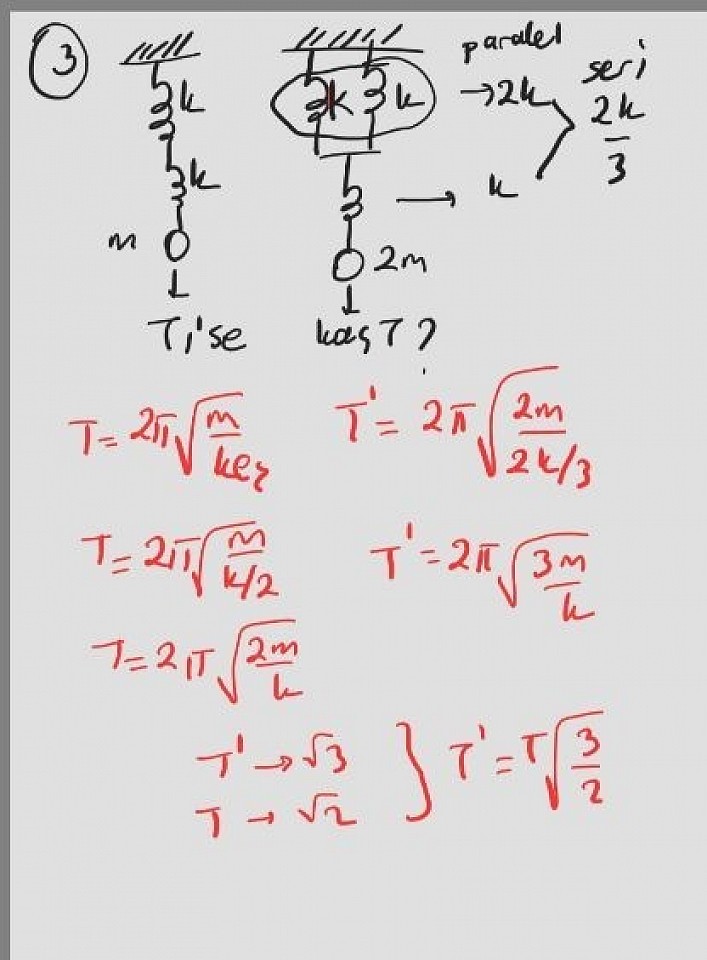 3
k
k
m
T,'se
k k
paralel
→2k
→ k
seri
2k/3
2m
kaç T?
T = 2π√(m/keş)
T = 2π√(m/(k/2))
T = 2π√(2m/k)
T' = 2π√(2m/(2k/3))
T' = 2π√(3m/k)
T' → √3
T → √2
} T' = T√(3/2)